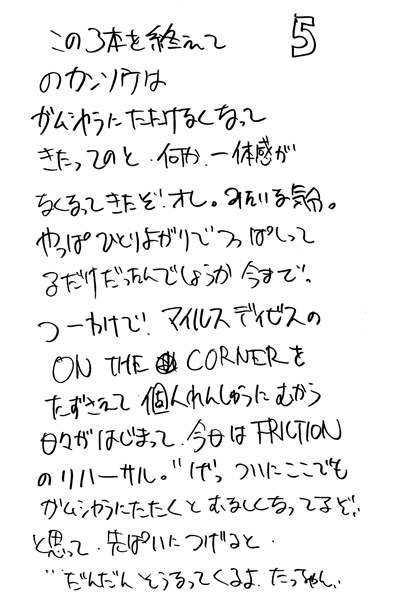 5
この3本を終えて
のカンソウは
ガムシャラにたたけなくなって
きたってのと、何か、一体感が
なくなってきたぞ!オレ。みたいな気分。
やっぱひとりよがりでつっぱしって
るだけだったんでしょうか今まで。
つーわけで、マイルスディビスの
ON THE CORNERを
たずさえて個人れんしゅうにむかう
日々がはじまって、今日はFRICTION
のリハーサル。"げっ ついにここでも
ガムシャラにたたくとむなしくなってるぞ"
と思って、先ぱいにつげると、
"だんだんそうなってくるよ、たっちゃん"